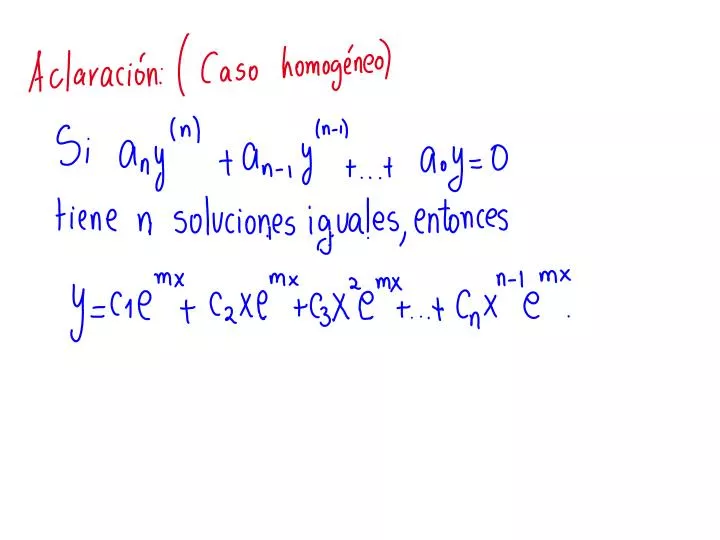 Aclaración: (Caso homogéneo)
Si aₙy⁽ⁿ⁾ + aₙ₋₁y⁽ⁿ⁻¹⁾ +...+ a₀y = 0
tiene n soluciones iguales, entonces
y = c₁eᵐˣ + c₂xeᵐˣ + c₃x²eᵐˣ +...+ cₙxⁿ⁻¹eᵐˣ.